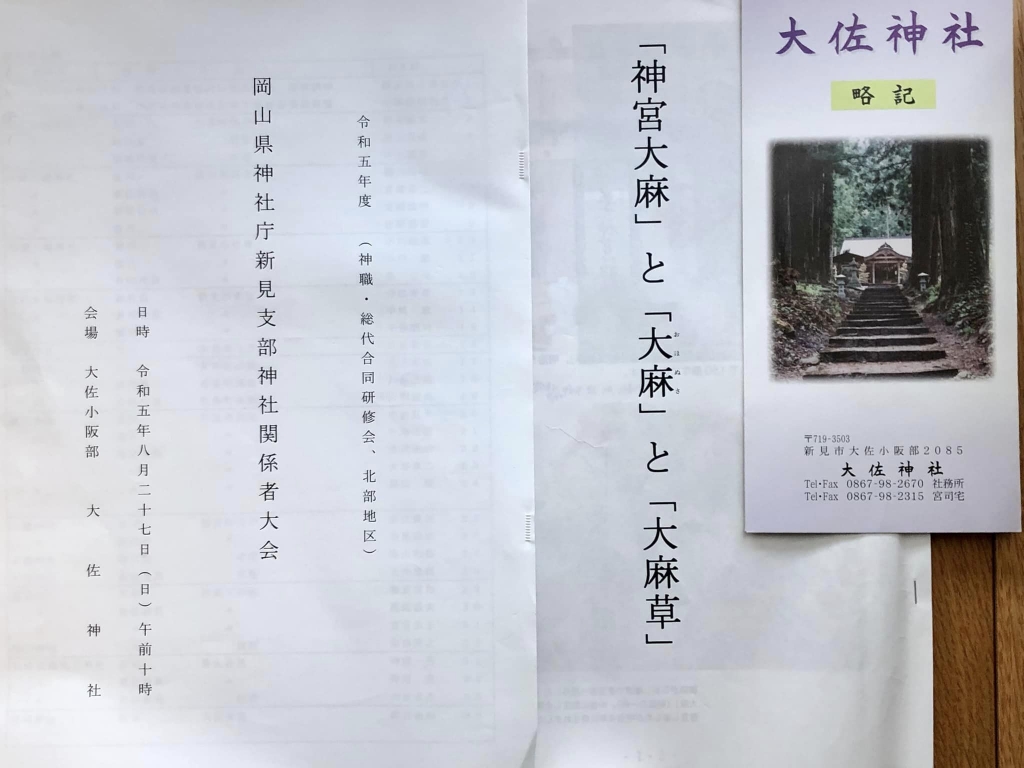 大佐神社
略記
〒719-3503
新見市大佐小阪部2085
大佐神社
Tel・Fax 0867-98-2670 社務所
Tel・Fax 0867-98-2315 宮司宅
「神宮大麻」と「大麻」と「大麻草」
おほぬさ
令和五年度 (神職・総代合同研修会、北部地区)
岡山県神社庁新見支部神社関係者大会
日時 令和五年八月二十七日(日)午前十時
会場 大佐小阪部 大佐神社